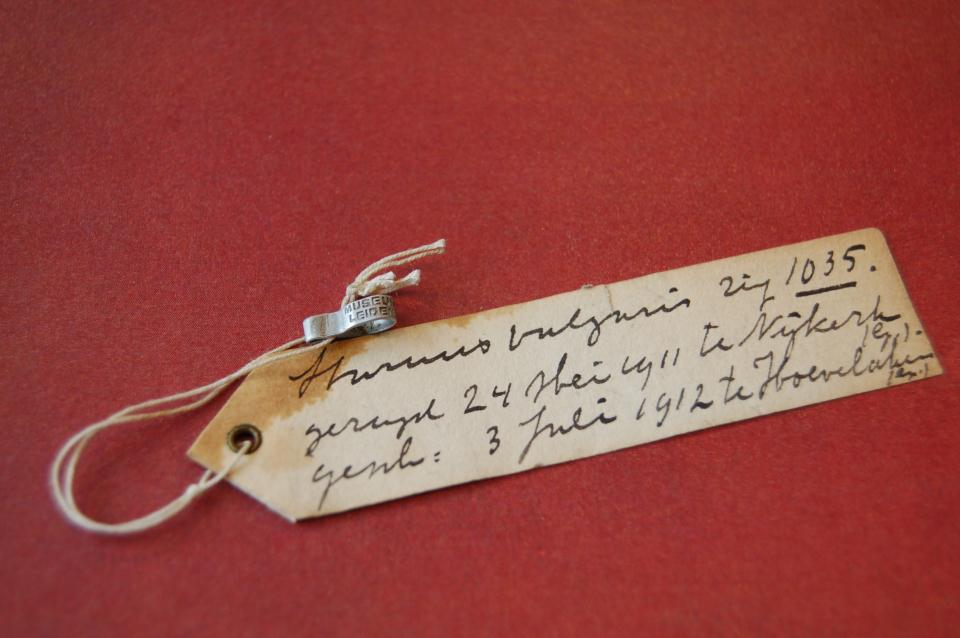 MUSEUM
LEIDEN
Sturnus vulgaris ring 1035.
geringd 24 Mei 1911 te Nijkerk
(G.).
gesch: 3 Juli 1912 te Hoevelaken